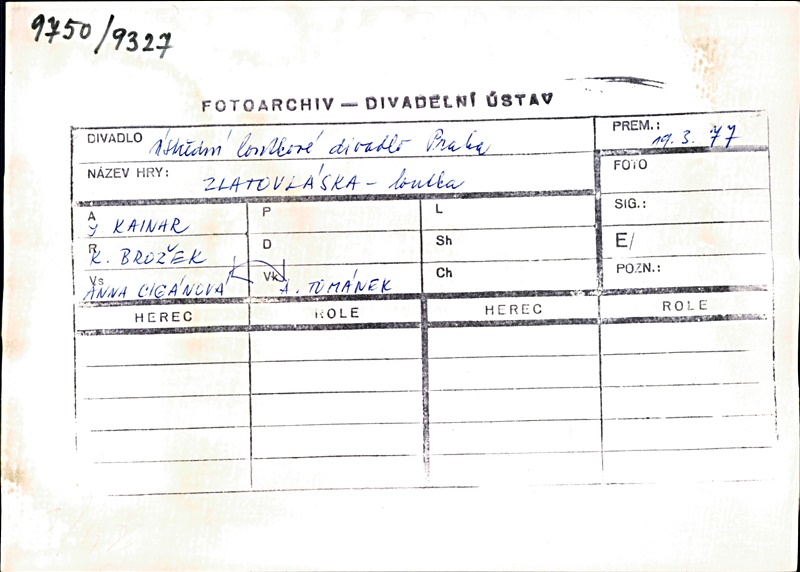 9750/9327
FOTOARCHIV — DIVADELNÍ ÚSTAV
DIVADLO Ústřední loutkové divadlo Praha
PREM.: 19.3.77
NÁZEV HRY: ZLATOVLÁSKA – loutka
FOTO
A J KAINAR
P
L
SIG.:
R K. BROŽEK
D
Sh
E/
Vs ANNA CIGÁNOVÁ
Vk A. TOMÁNEK
Ch
POZN.:
HEREC ROLE HEREC ROLE